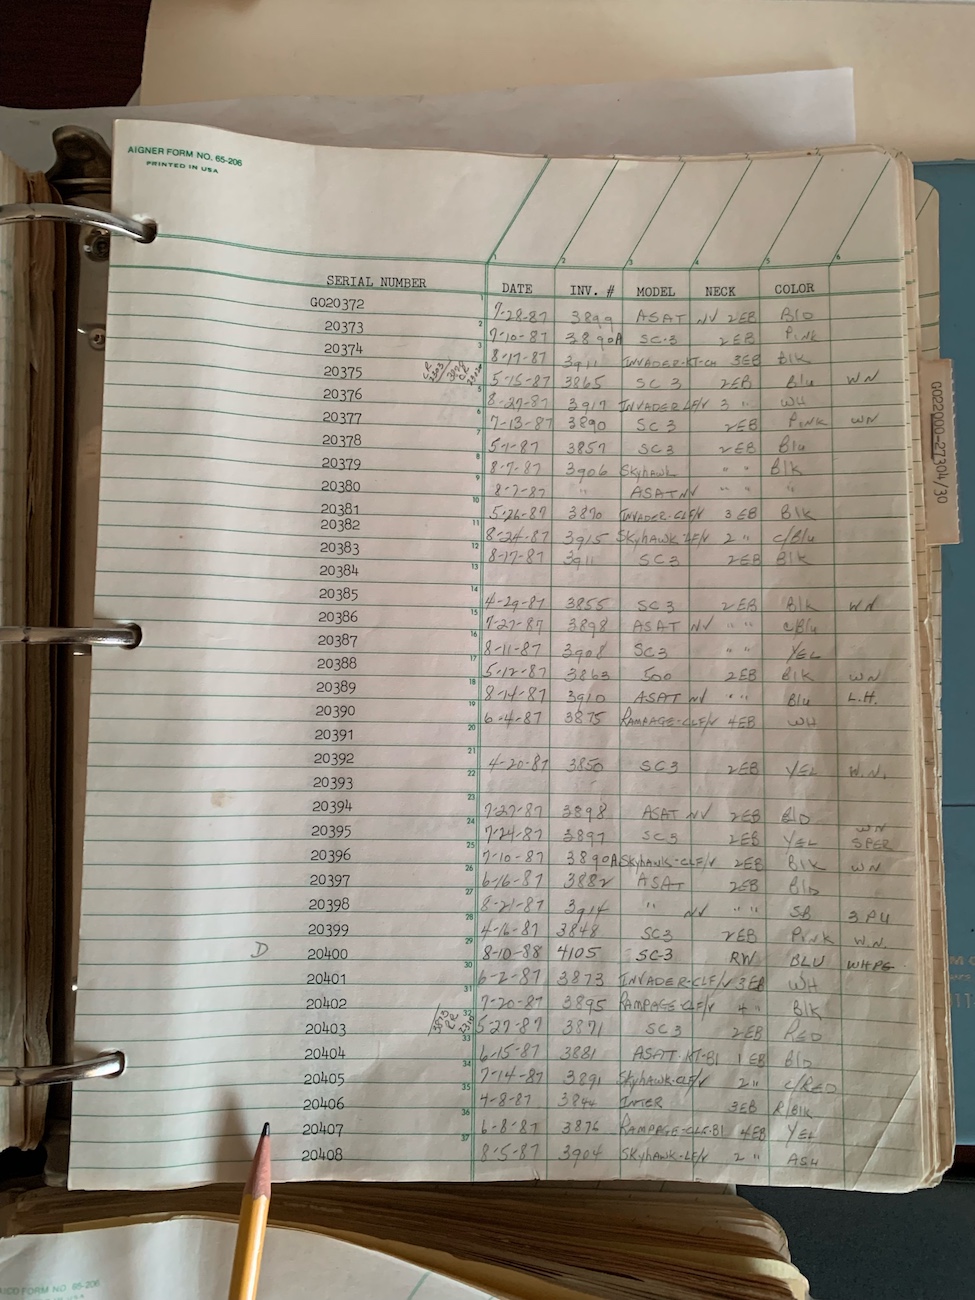 AIGNER FORM NO. 65-206
PRINTED IN USA
1 2 3 4 5 6
SERIAL NUMBER DATE INV. # MODEL NECK COLOR
GO20372 1 7-28-87 3899 ASAT NV 2EB BLD
20373 2 7-10-87 3890A SC-3 2EB PINK
20374 3 8-17-87 3911 INVADER-KT-CH 3EB Blk
20375 5-15-87 3865 SC 3 2EB Blu WN
20376 5 8-27-87 3917 INVADER LF/V 3 " WH
20377 6 7-13-87 3890 SC3 2EB PINK WN
20378 7 5-1-87 3857 SC3 2EB Blu
20379 8 8-7-87 3906 Skyhawk " " Blk
20380 9 8-7-87 " ASAT NV " " "
20381 10 5-26-87 3870 INVADER-CLF/V 3EB Blk
20382 11 8-24-87 3915 SkyhAWK LF/V 2 " c/Blu
20383 12 8-17-87 3911 SC3 2EB Blk
20384 13
20385 14 4-29-87 3855 SC3 2EB Blk WN
20386 15 7-27-87 3898 ASAT NV " " c/Blu
20387 16 8-11-87 3908 SC3 " " YEL
20388 17 5-12-87 3863 500 2EB Blk WN
20389 18 8-14-87 3910 ASAT NV " " Blu L.H.
20390 19 6-4-87 3875 RAMPAGE-CLF/V 4EB WH
20391 20
20392 21 4-20-87 3850 SC3 2EB YEL W.N.
20393 22
20394 23 7-27-87 3898 ASAT NV 2EB BLD
20395 24 7-24-87 3897 SC3 2EB YEL WN SPER
20396 25 7-10-87 3890A SkyhAWK-CLF/V 2EB Blk WN
20397 26 6-16-87 3882 ASAT 2EB Bld
20398 27 8-21-87 3914 " NV " " SB 3 PU
20399 28 4-16-87 3848 SC3 2EB PINK W.N.
D 20400 29 8-10-88 4105 SC-3 RW BLU WHPG
20401 30 6-2-87 3873 INVADER-CLF/V 3EB WH
20402 31 7-20-87 3895 RAMPAGE-CLF/V 4 " Blk
20403 32 5-27-87 3871 SC3 2EB RED
20404 33 6-15-87 3881 ASAT-KT-Bl 1 EB Bld
20405 34 7-14-87 3891 Skyhawk-CLF/V 2 " c/RED
20406 35 4-8-87 3844 INTER 3EB R/Blk
20407 36 6-8-87 3876 RAMPAGE-CLF-Bl 4EB YEL
20408 37 8-5-87 3904 SKyhAWK-LF/V 2 " ASH
GO22000-27304/30
FORM NO. 65-206